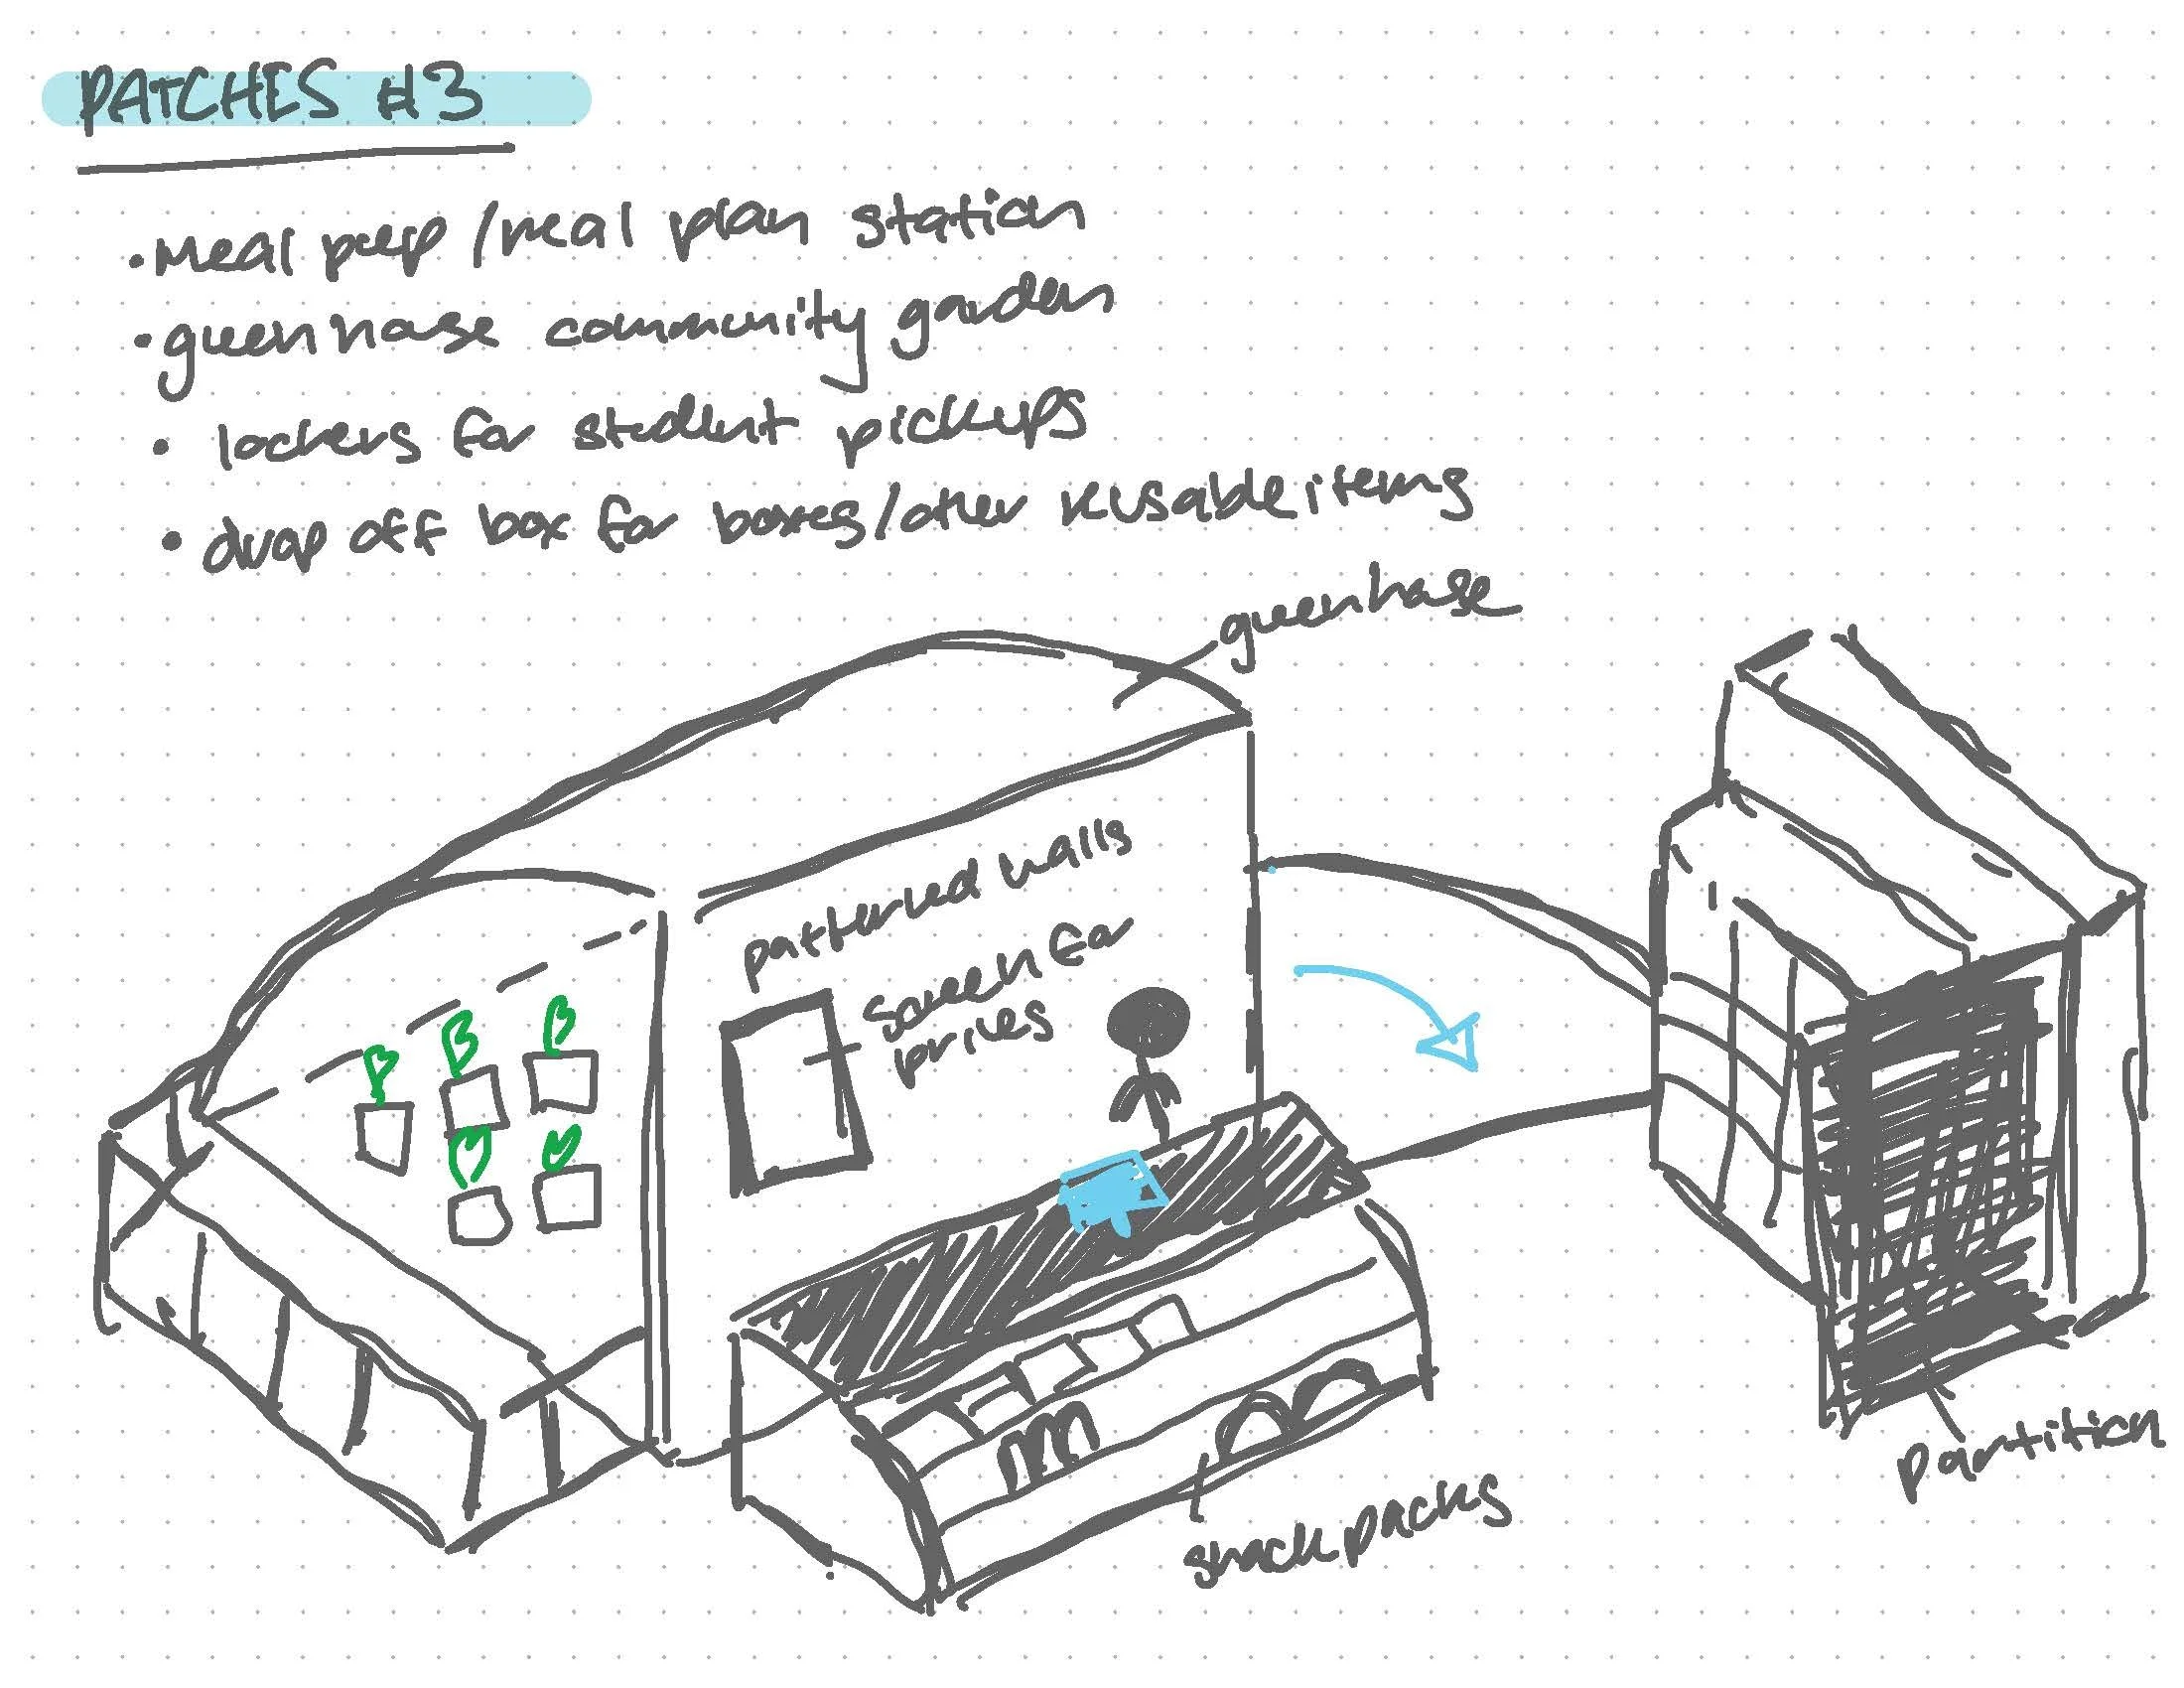 PATCHES #3
• Meal prep/meal plan station
• greenhouse community garden
• lockers for student pickups
• drop off box for boxes/other reusable items
greenhouse
patterned walls
screen for
prices
snack packs
partition